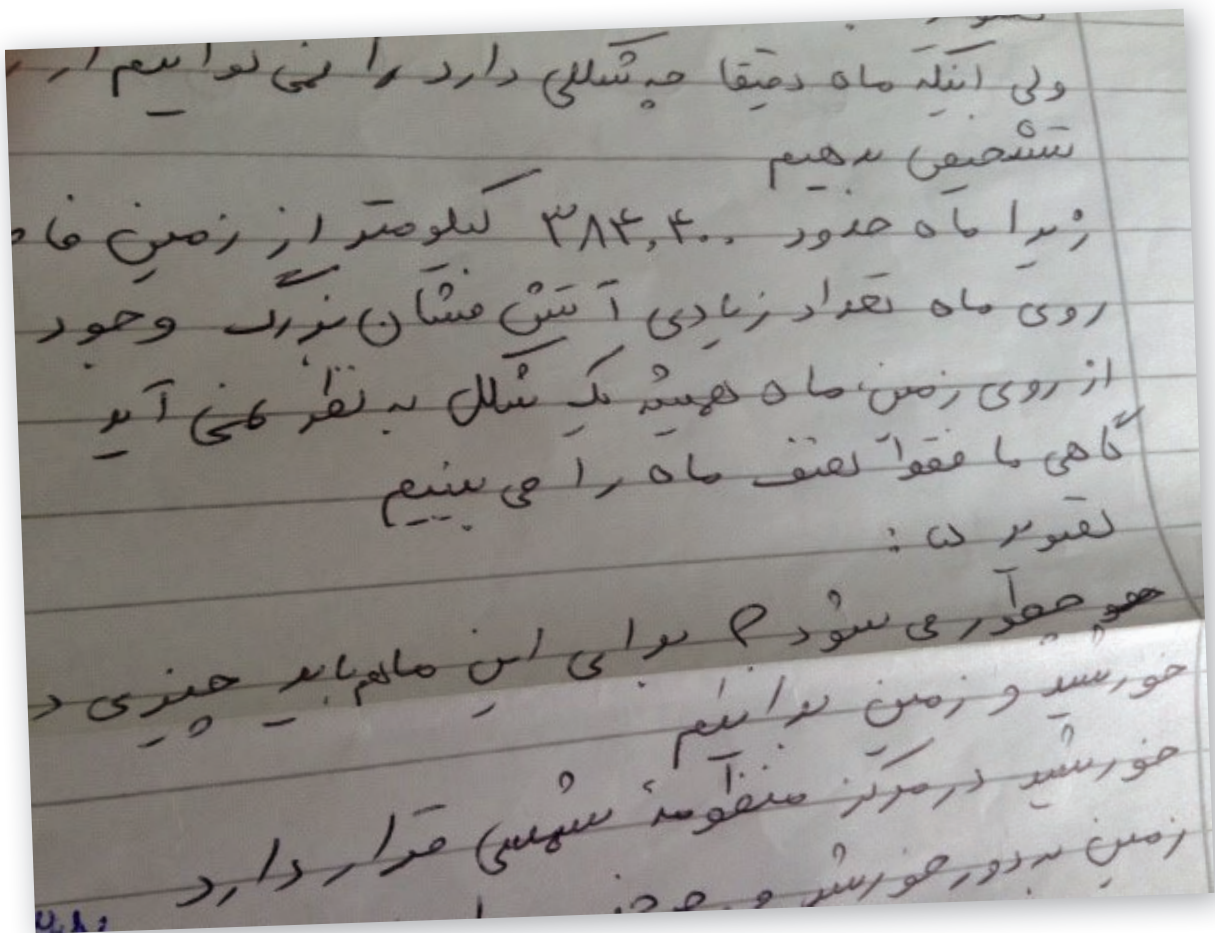 ولی اینکه ماه دقیقا چه شکلی دارد را نمی توانیم از
تشخیص بدهیم
زیرا ماه حدود ۳۸۴,۴۰۰ کیلومتر از زمین فا
روی ماه تعداد زیادی آتش فشان بزرگ وجود
از روی زمین ماه همیشه یک شکل به نظر نمی آید
گاهی ما فقط نصف ماه را می بینیم
تصویر ۵۱:
چطور می شود؟ برای این ماهم باید چیزی د
خورشید و زمین بدانیم
خورشید در مرکز منظومهٔ شمسی قرار دارد
زمین به دور خورشید می چرخد